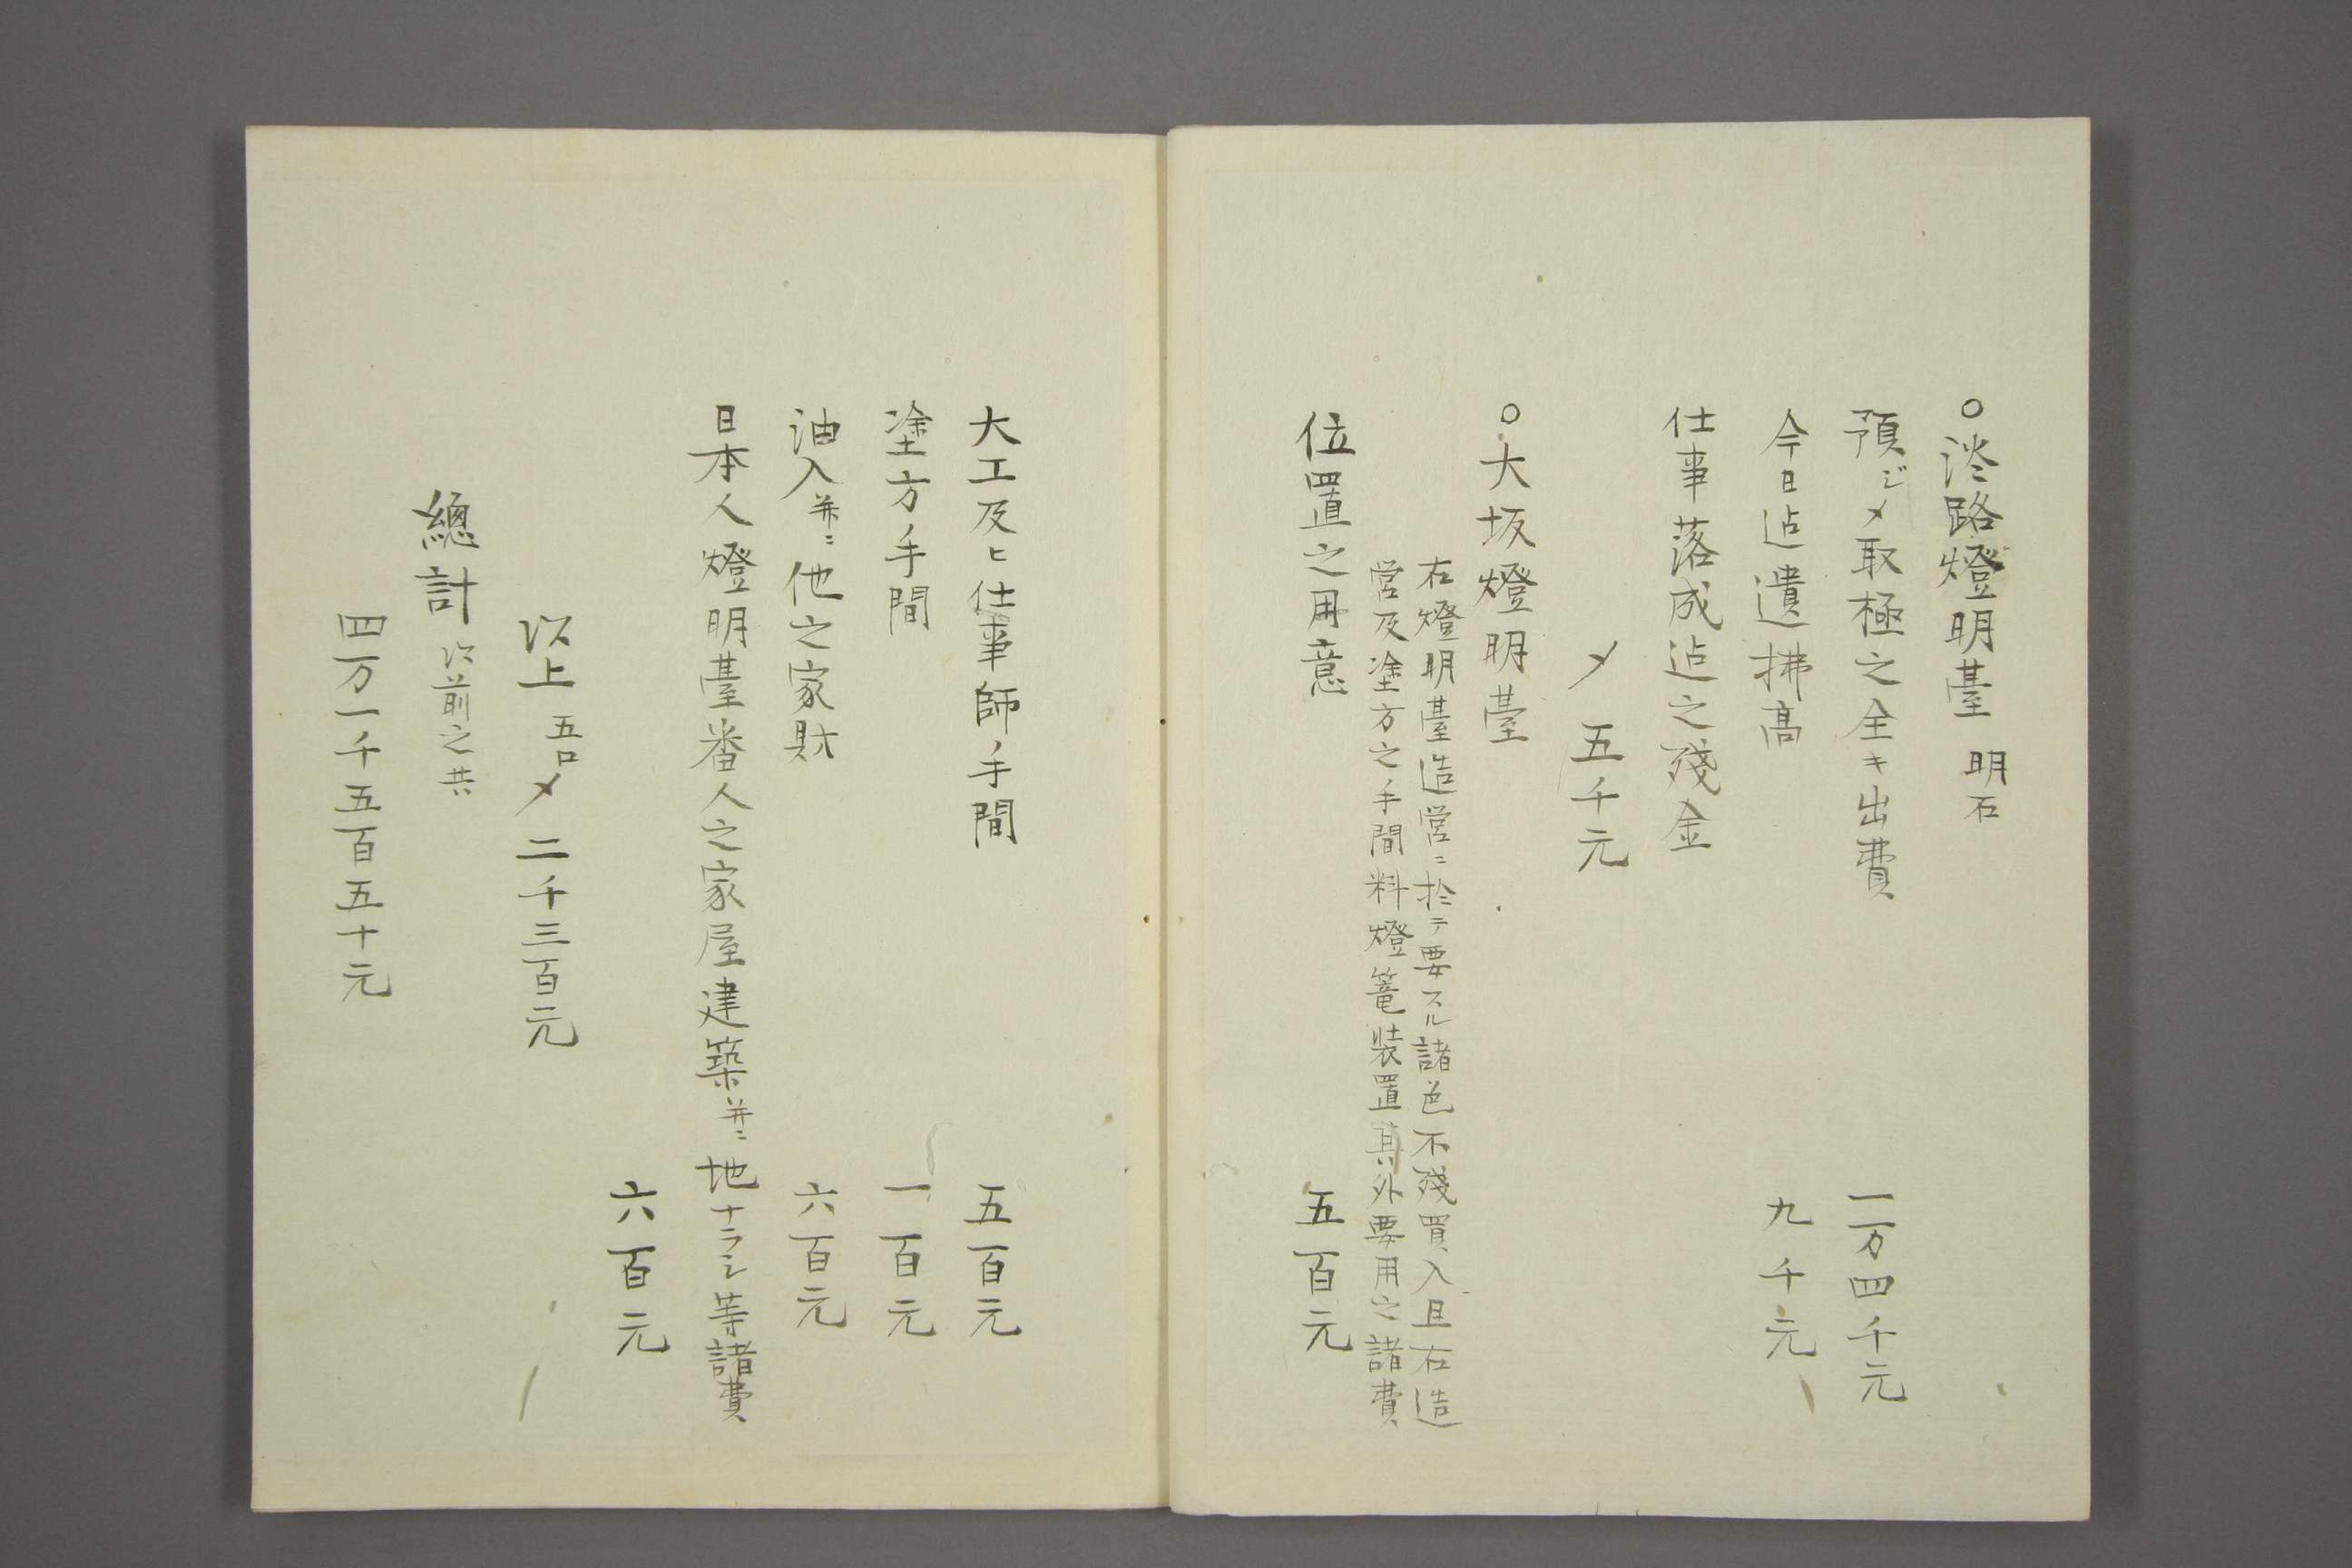 ○淡路燈明臺 明石
預ジメ取極之全キ出費 一万四千元
今日迠遣拂高 九千元
仕事落成迠之殘金
〆 五千元
○大坂燈明臺
右燈明臺造営ニ於テ要スル諸色不殘買入且右造
営及塗方之手間料燈篭装置其外要用之諸費
位置之用意 五百元
大工及ヒ仕事師手間 五百元
塗方手間 一百元
油入并ニ他之家財 六百元
日本人燈明臺番人之家屋建築并ニ地ナラシ等諸費
六百元
以上 五口〆二千三百元
總計 以前之共
四万一千五百五十元